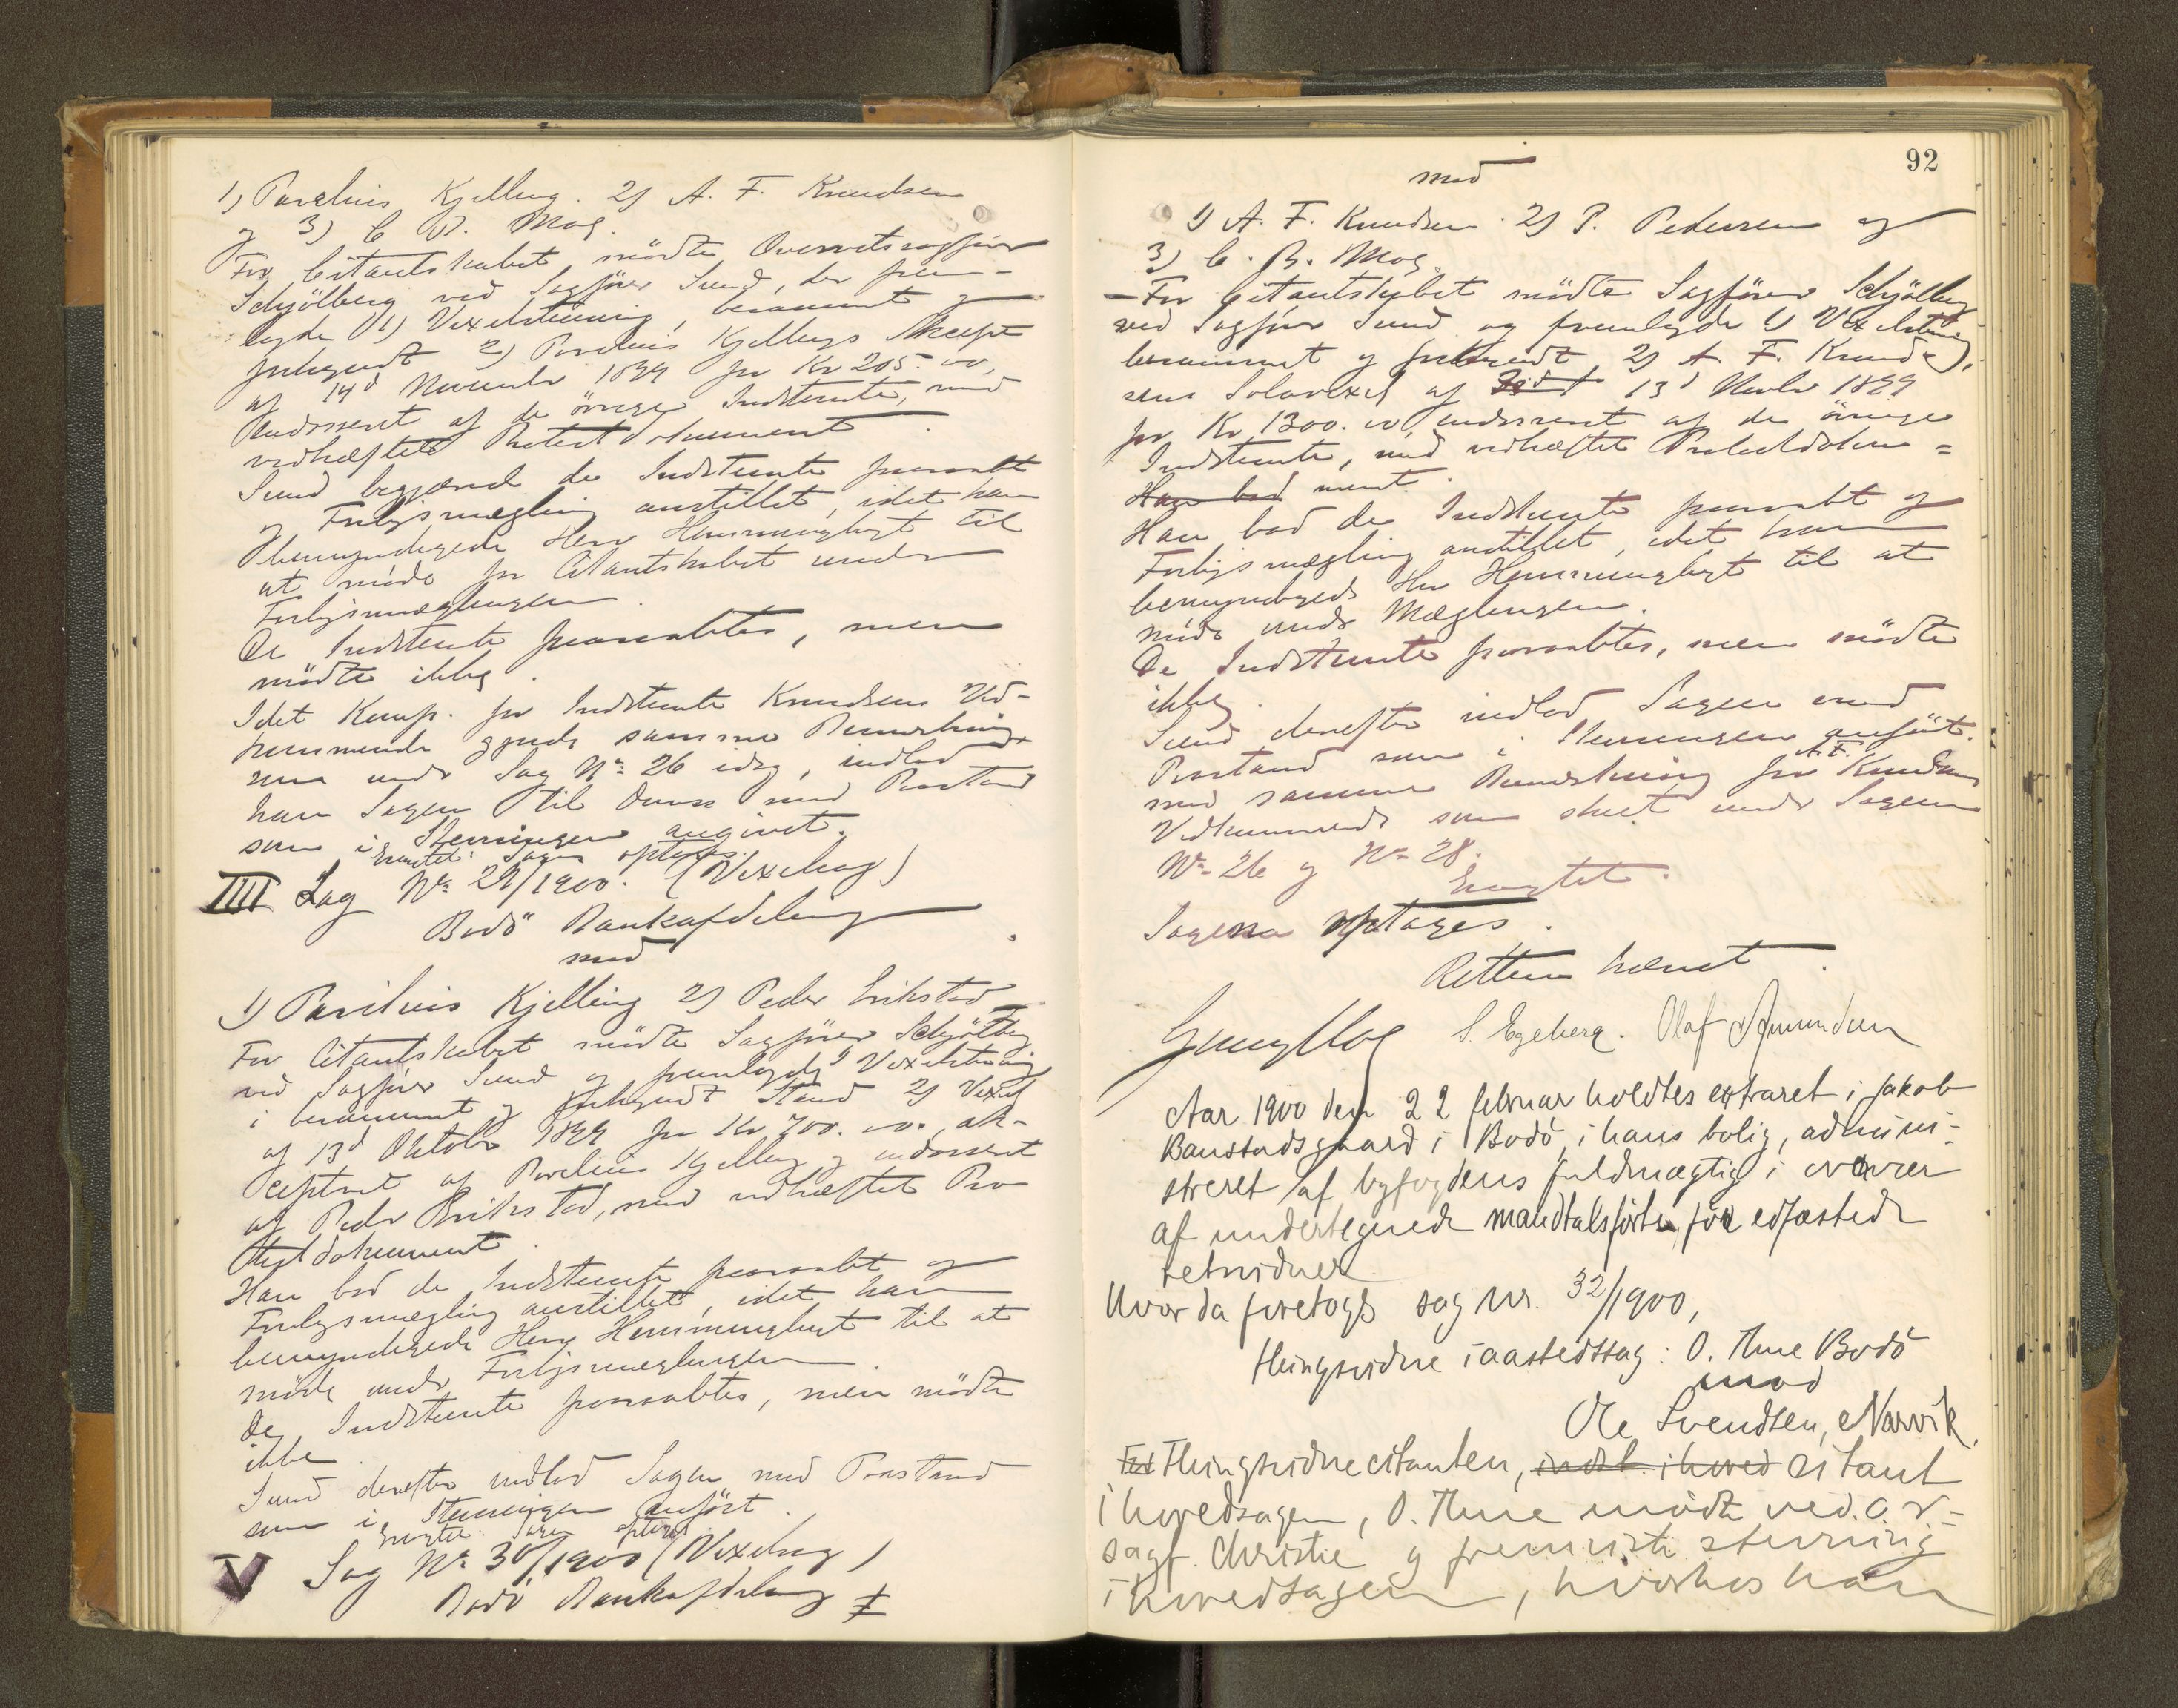 1) Parelius Kjelling. 2) A. F. Knudsen
og 3) C. B. Moe.
For Citantskabet mødte Overretssagfører
Schjølberg ved Sagfører Sund, der frem-
lagde 1) Vexelstævning, berammet og
forkyndt 2) Parelius Kjellings Akcept
af 14d November 1899 for Kr 205.00,
endosseret af de øvrige Indstevnte, med
vedhæftet Protestdokument.
Sund begjærede de Indstevnte paaraabt
og Forligsmægling anstillet, idet han
bemyndigede Herr Hemmingbyt til
at møde for Citantskabet under
Forligsmæglingen.
De Indstevnte paaraabtes, men
mødte ikke.
Idet Komp. for Indstevnte Knudsens Ved-
kommende gjorde samme Bemærkning
som under Sag No 26 idag, indlod
han Sagen til Doms med Paastand
som i Stevningen angivet.
Eragtet: Sagen optages.
IIII Sag No 29/1900. (Vexelsag)
Bodö Bankafdeling
mod
1) Parelius Kjelling 2) Peder Erikstad
For Citantskabet mødte Sagfører Schjølberg
ved Sagfører Sund og fremlagde 1) Vexelstævning
i berammet og forkyndt Stand 2) Vexel
af 13d Oktober 1899 for Kr 700.00, ak-
cepteret af Parelius Kjelling og endosseret
af Peder Erikstad, med vedhæftet Pro-
testdokument.
Han bad de Indstevnte paaraabt og
Forligsmægling anstillet, idet han
bemyndigede Herr Hemmingbyt til at
møde under Forligsmæglingen.
De Indstevnte paaraabtes, men mødte
ikke.
Sund derefter indlod Sagen med Paastand
som i Stevningen anført.
Eragtet: Sagen optages.
V Sag No 30/1900 (Vexelsag)
Bodö Bankafdeling
92
mod
1) A. F. Knudsen. 2) P. Pedersen og
3) C. B. Moe.
For Citantskabet mødte Sagfører Schjølberg
ved Sagfører Sund og fremlagde 1) Vexelstævning,
berammet og forkyndt 2) A. F. Knud-
sens Solavexel af 13d Novbr 1899
for Kr 1300.00, endosseret af de øvrige
Indstevnte, med vedhæftet Protestdoku=
Han bad ment.
Han bad de Indstevnte paaraabt og
Forligsmægling anstillet, idet han
bemyndigede Hr Hemmingbyt til at
møde under Mæglingen.
De Indstevnte paaraabtes, men mødte
ikke.
Sund derefter indlod Sagen med
Paastand som i Stevningen anført.
med samme Bemærkning for A. F. Knudsens
Vedkommende som skeet under Sagerne
No 26 og No 28.
Eragtet.
Sagerna optages.
Retten hævet.
S. Egeberg. Olaf Amundsen
Aar 1900 den 22 februar holdtes extraret i Jakob
Banstadsgaard i Bodö, i hans bolig, admini-
streret af byfogdens fuldmægtig i overvær
af undertegnede mandtalsførte, før edfæstede
retsvidner
Hvorda foretoges sag nr. 32/1900,
thingsvidne i aastedssag: O. Thue Bodö
mod
Ole Svendsen, Narvik.
For Thingsvidnecitanten, indst. i hoved citant
i hovedsagen, O. Thue mødte ved o.r=
sagf. Christie og fremviste stevning
i hovedsagen, hvorhos han